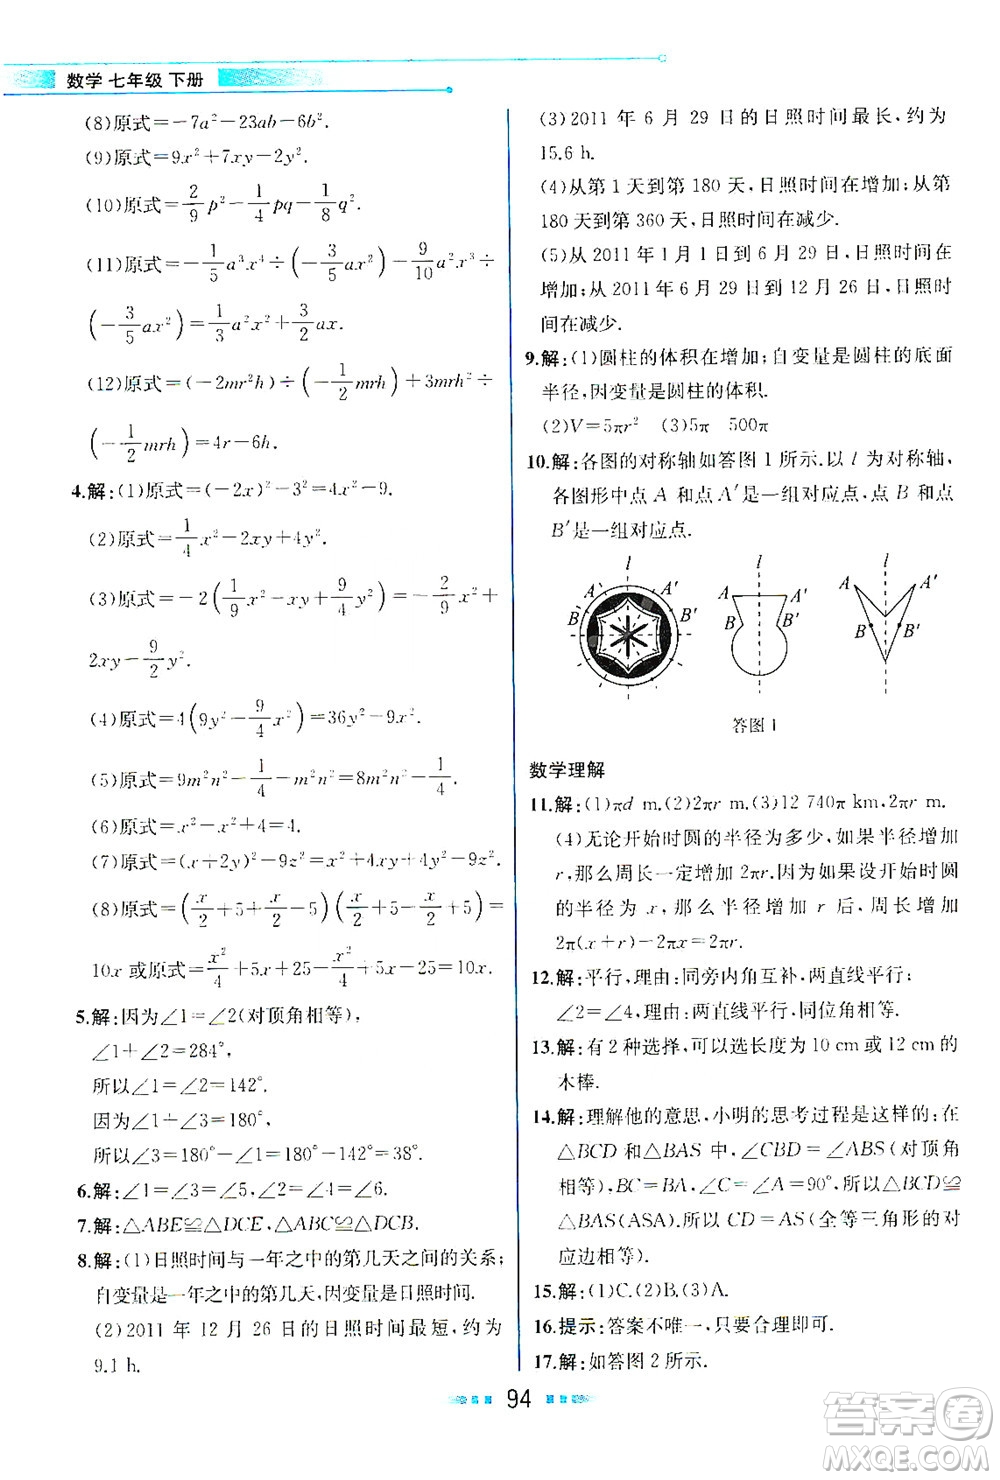 数学 七年级 下册
(8)原式=-7a²-23ab-6b².
(9)原式=9x²+7xy-2y².
(10)原式=2/9p²-1/4pq-1/8q².
(11)原式=-1/5a³x⁴÷(-3/5ax³)-9/10a²x³÷
(-3/5ax³)=1/3a²x²+3/2ax.
(12)原式=(-2mr²h)÷(-1/2mrh)+3mrh²÷
(-1/2mrh)=4r-6h.
4.解:(1)原式=(-2x)²-3²=4x²-9.
(2)原式=1/4x²-2xy+4y².
(3)原式=-2(1/9x²-xy+9/4y²)=-2/9x²+
2xy-9/2y².
(4)原式=4(9y²-9/4x²)=36y²-9x².
(5)原式=9m²n²-1/4-m²n²=8m²n²-1/4.
(6)原式=x²-x²+4=4.
(7)原式=(x+2y)²-9z²=x²+4xy+4y²-9z².
(8)原式=(x/2+5+x/2-5)(x/2+5-x/2+5)=
10x或原式=x²/4+5x+25-x²/4+5x-25=10x.
5.解:因为∠1=∠2(对顶角相等),
∠1+∠2=284°,
所以∠1=∠2=142°.
因为∠1+∠3=180°,
所以∠3=180°-∠1=180°-142°=38°.
6.解:∠1=∠3=∠5=∠2=∠4=∠6.
7.解:△ABE≌△DCE,△ABC≌△DCB.
8.解:(1)日照时间与一年之中的第几天之间的关系;
自变量是一年之中的第几天,因变量是日照时间.
(2)2011 年 12 月 26 日的日照时间最短,约为
9.1 h.
(3)2011 年 6 月 29 日的日照时间最长,约为
15.6 h.
(4)从第 1 天到第 180 天,日照时间在增加;从第
180 天到第 360 天,日照时间在减少.
(5)从 2011 年 1 月 1 日到 6 月 29 日,日照时间在
增加;从 2011 年 6 月 29 日到 12 月 26 日,日照时
间在减少.
9.解:(1)圆柱的体积在增加;自变量是圆柱的底面
半径,因变量是圆柱的体积.
(2)V=5πr² (3)5π 500π
10.解:各图的对称轴如答图 1 所示.以 l 为对称轴,
各图形中点 A 和点 A′是一组对应点,点 B 和点
B′是一组对应点.
l
A A′
B B′
l
A A′
B B′
l
A A′
B B′
答图 1
数学理解
11.解:(1)πd m.(2)2πr m.(3)12 740π km,2πr m.
(4)无论开始时圆的半径为多少,如果半径增加
r,那么周长一定增加2πr.因为如果设开始时圆
的半径为 x,那么半径增加 r 后,周长增加
2π(x+r)-2πx=2πr.
12.解:平行,理由:同旁内角互补,两直线平行;
∠2=∠4,理由:两直线平行,同位角相等.
13.解:有 2 种选择,可以选长度为 10 cm或 12 cm的
木棒.
14.解:理解他的意思,小明的思考过程是这样的:在
△BCD 和△BAS 中,∠CBD=∠ABS(对顶角
相等),BC=BA,∠C=∠A=90°,所以△BCD≌
△BAS(ASA).所以 CD=AS(全等三角形的对
应边相等).
15.解:(1)C.(2)B.(3)A.
16.提示:答案不唯一,只要合理即可.
17.解:如答图 2 所示.
94
答案圈
MXQE.COM